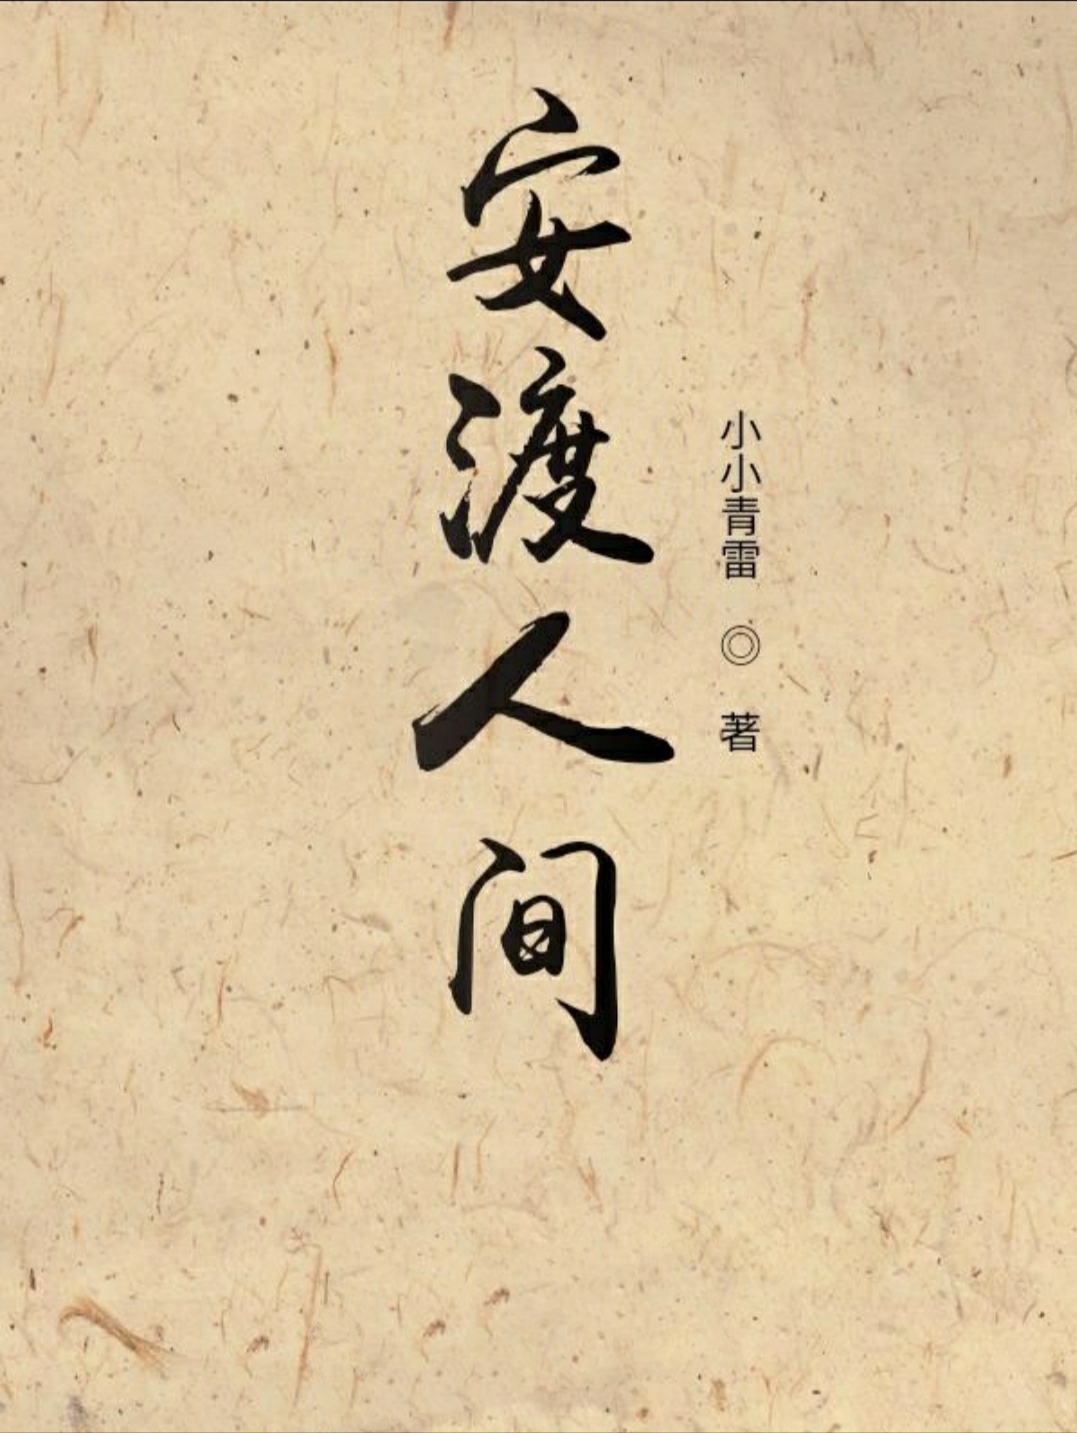 安渡人间
小小青雷 ◎ 著